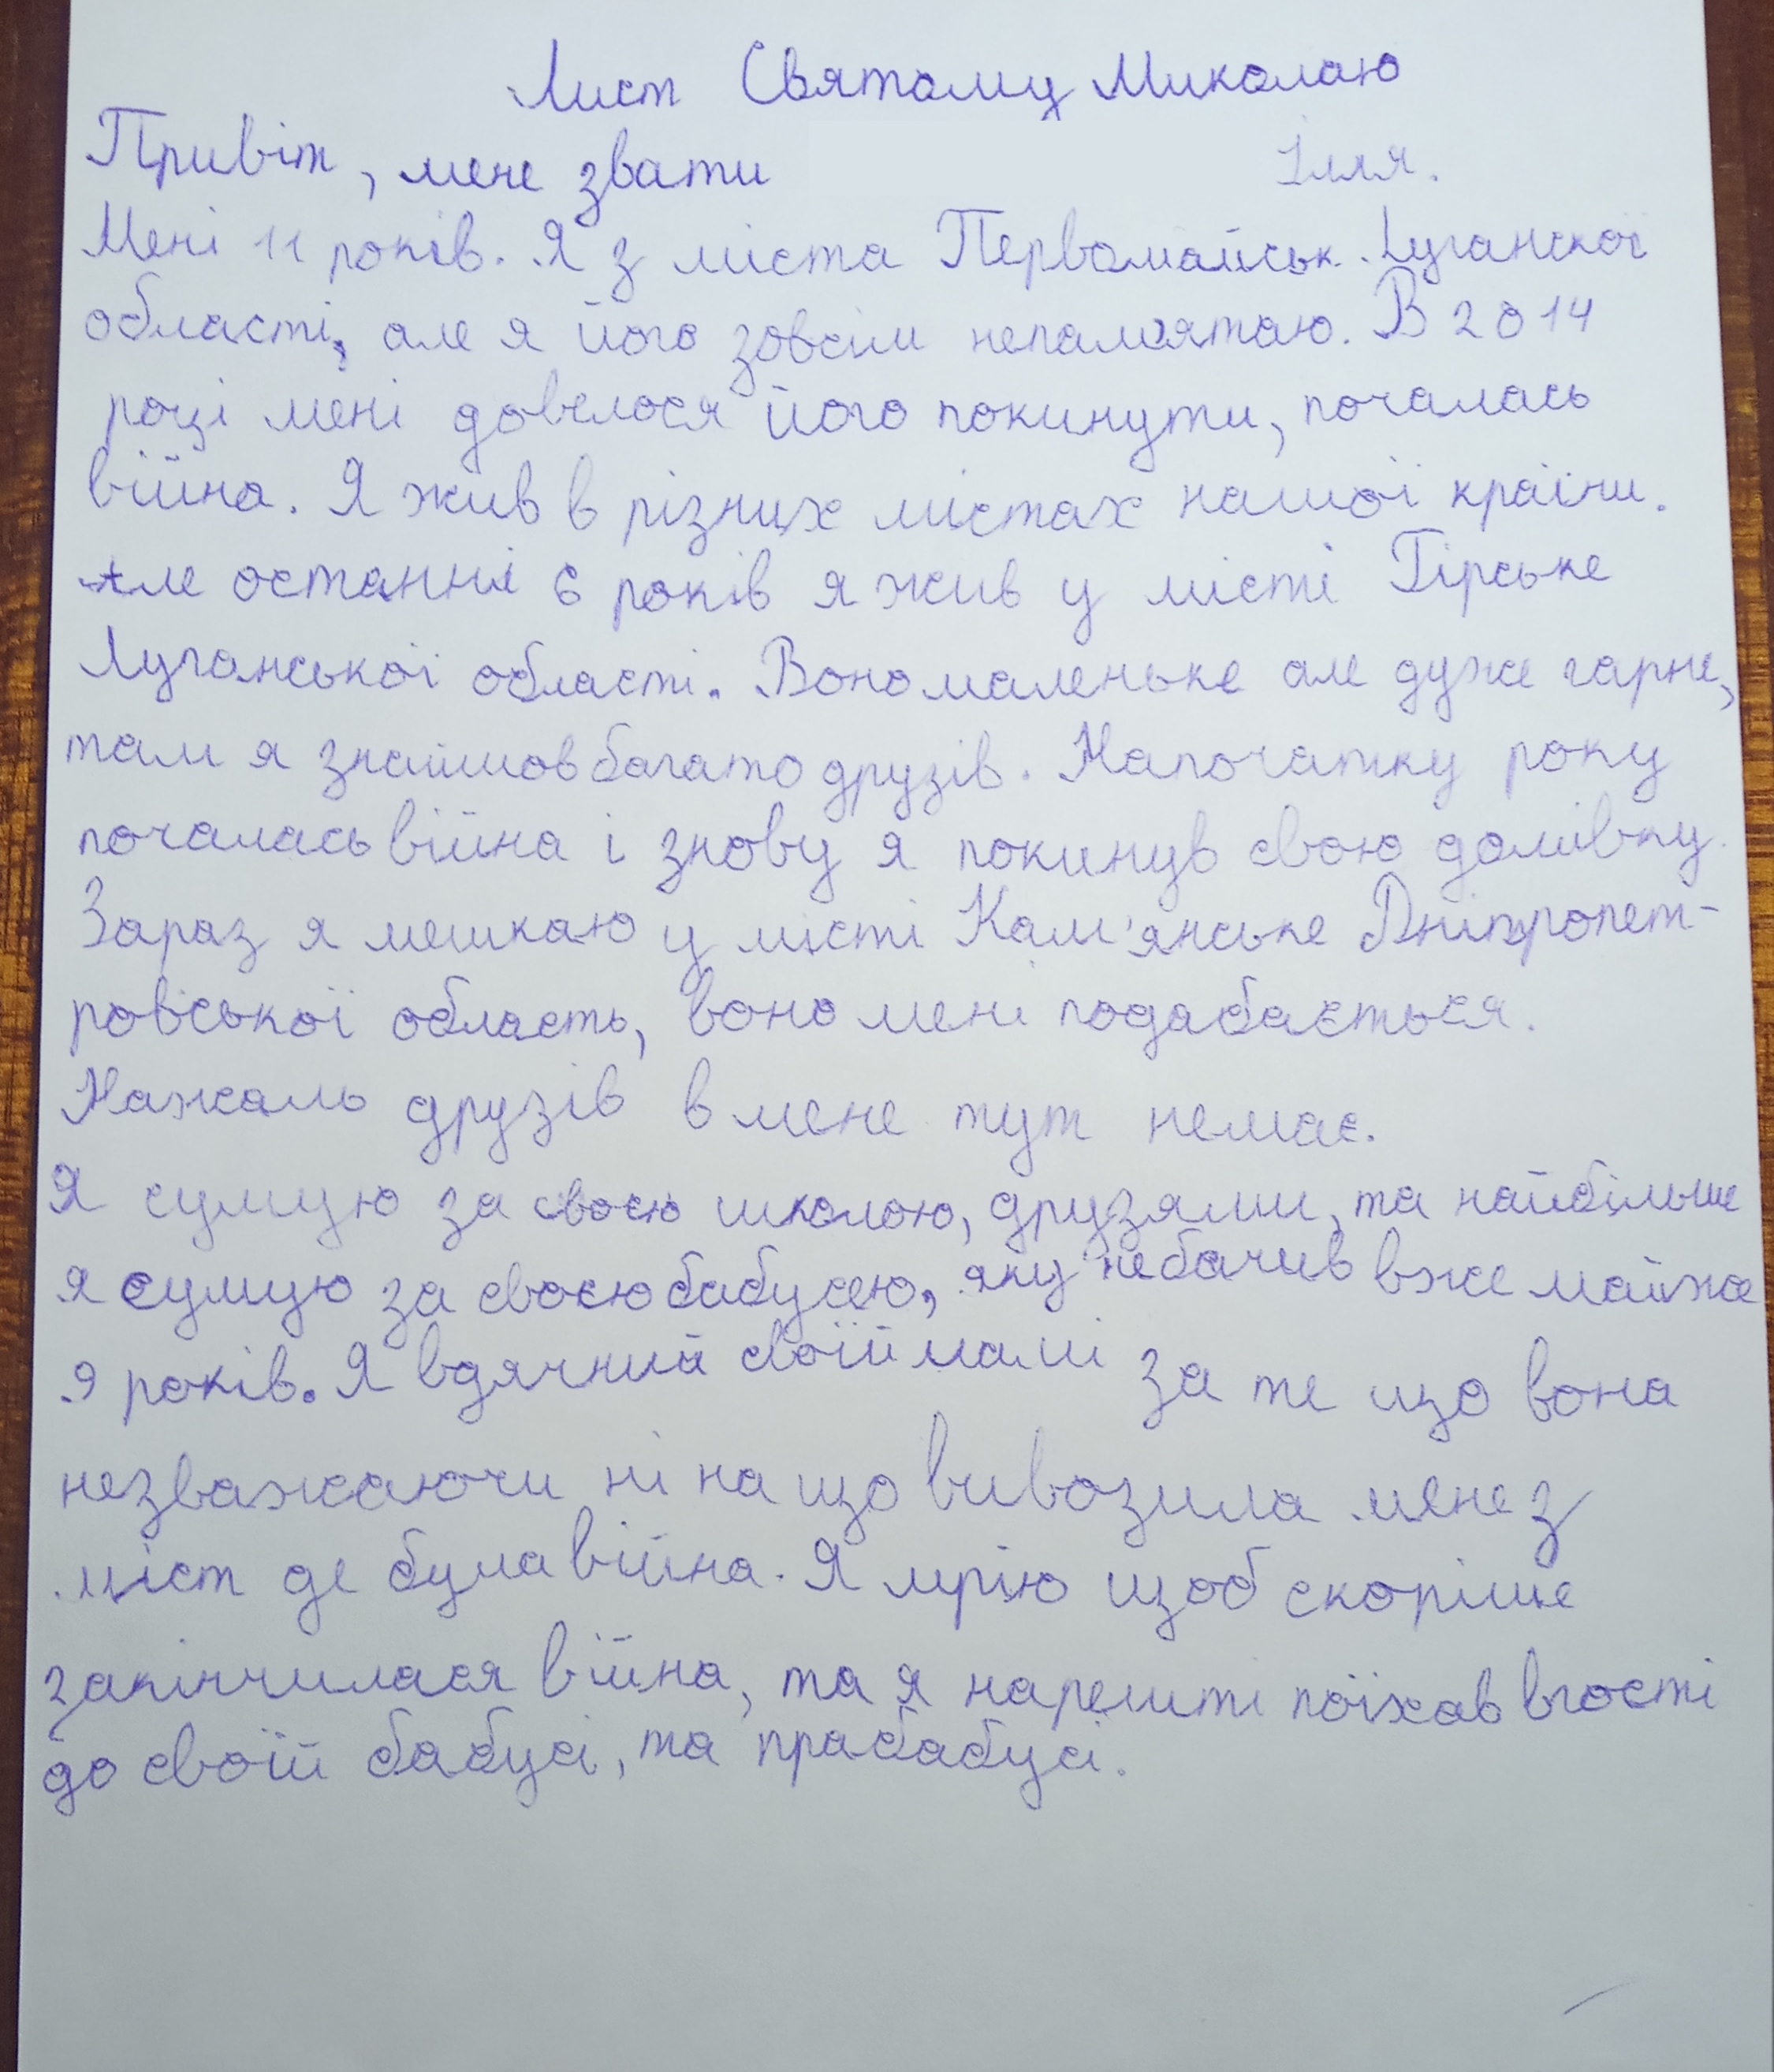 Лист Святому Миколаю
Привіт, мене звати Ілля.
Мені 11 років. Я з міста Первомайськ Луганскої
області, але я його зовсім непам'ятаю. В 2014
році мені довелося його покинути, почалась
війна. Я жив в різних містах нашої країни.
Але останні 6 років я жив у місті Гірське
Луганської області. Воно маленьке але дуже гарне,
там я знайшов багато друзів. Напочатку року
почалась війна і знову я покинув свою домівку.
Зараз я мешкаю у місті Кам'янське Дніпропет-
ровської область, воно мені подабається.
Нажаль друзів в мене тут немає.
Я сумую за своєю школою, друзями, та найбільше
я сумую за своєю бабусею, яку небачив вже майже
9 років. Я вдячний своїй мамі за те що вона
незважаючи ні на що вивозила мене з
міст де була війна. Я мрію щоб скоріше
закінчилася війна, та я нарешті поїхав вгості
до своїй бабусі, та прабабусі.